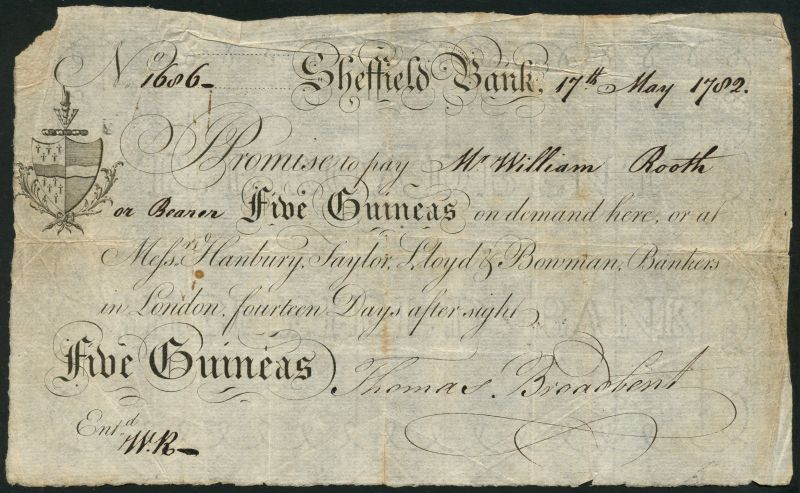 No. 1686 - Sheffield Bank, 17th May 1782.
I Promise to pay Mr William Rooth
or Bearer Five Guineas on demand here, or at
Messrs. Hanbury, Taylor, Lloyd & Bowman, Bankers
in London, fourteen Days after sight
Five Guineas Thomas. Broadbent
Entd. W.R -